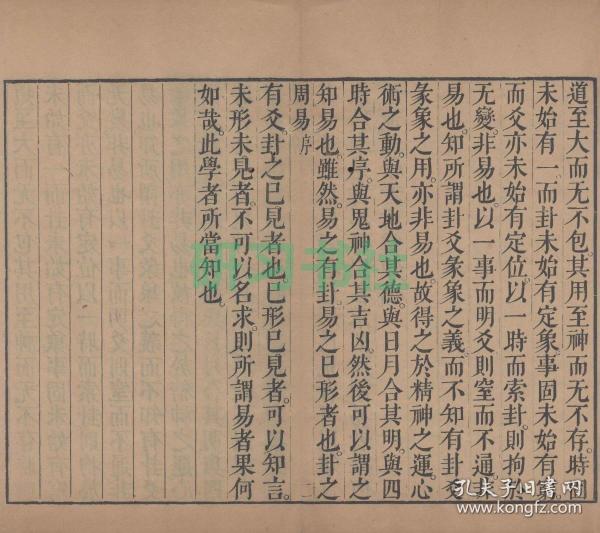 道至大而无不包。其用至神而无不存。時固
未始有一。而卦未始有定象。事固未始有窮。
而爻亦未始有定位。以一時而索卦。則拘於
无變。非易也。以一事而明爻。則窒而不通。非
易也。知所謂卦爻彖象之義。而不知有卦爻
彖象之用。亦非易也。故得之於精神之運。心
術之動。與天地合其德。與日月合其明。與四
時合其序。與鬼神合其吉凶。然後可以謂之
知易也。雖然。易之有卦。易之已形者也。卦之
周易 序 二
有爻。卦之已見者也。已形已見者。可以知言。
未形未見者。不可以名求。則所謂易者。果何
如哉。此學者所當知也。
研习书社
孔夫子旧书网